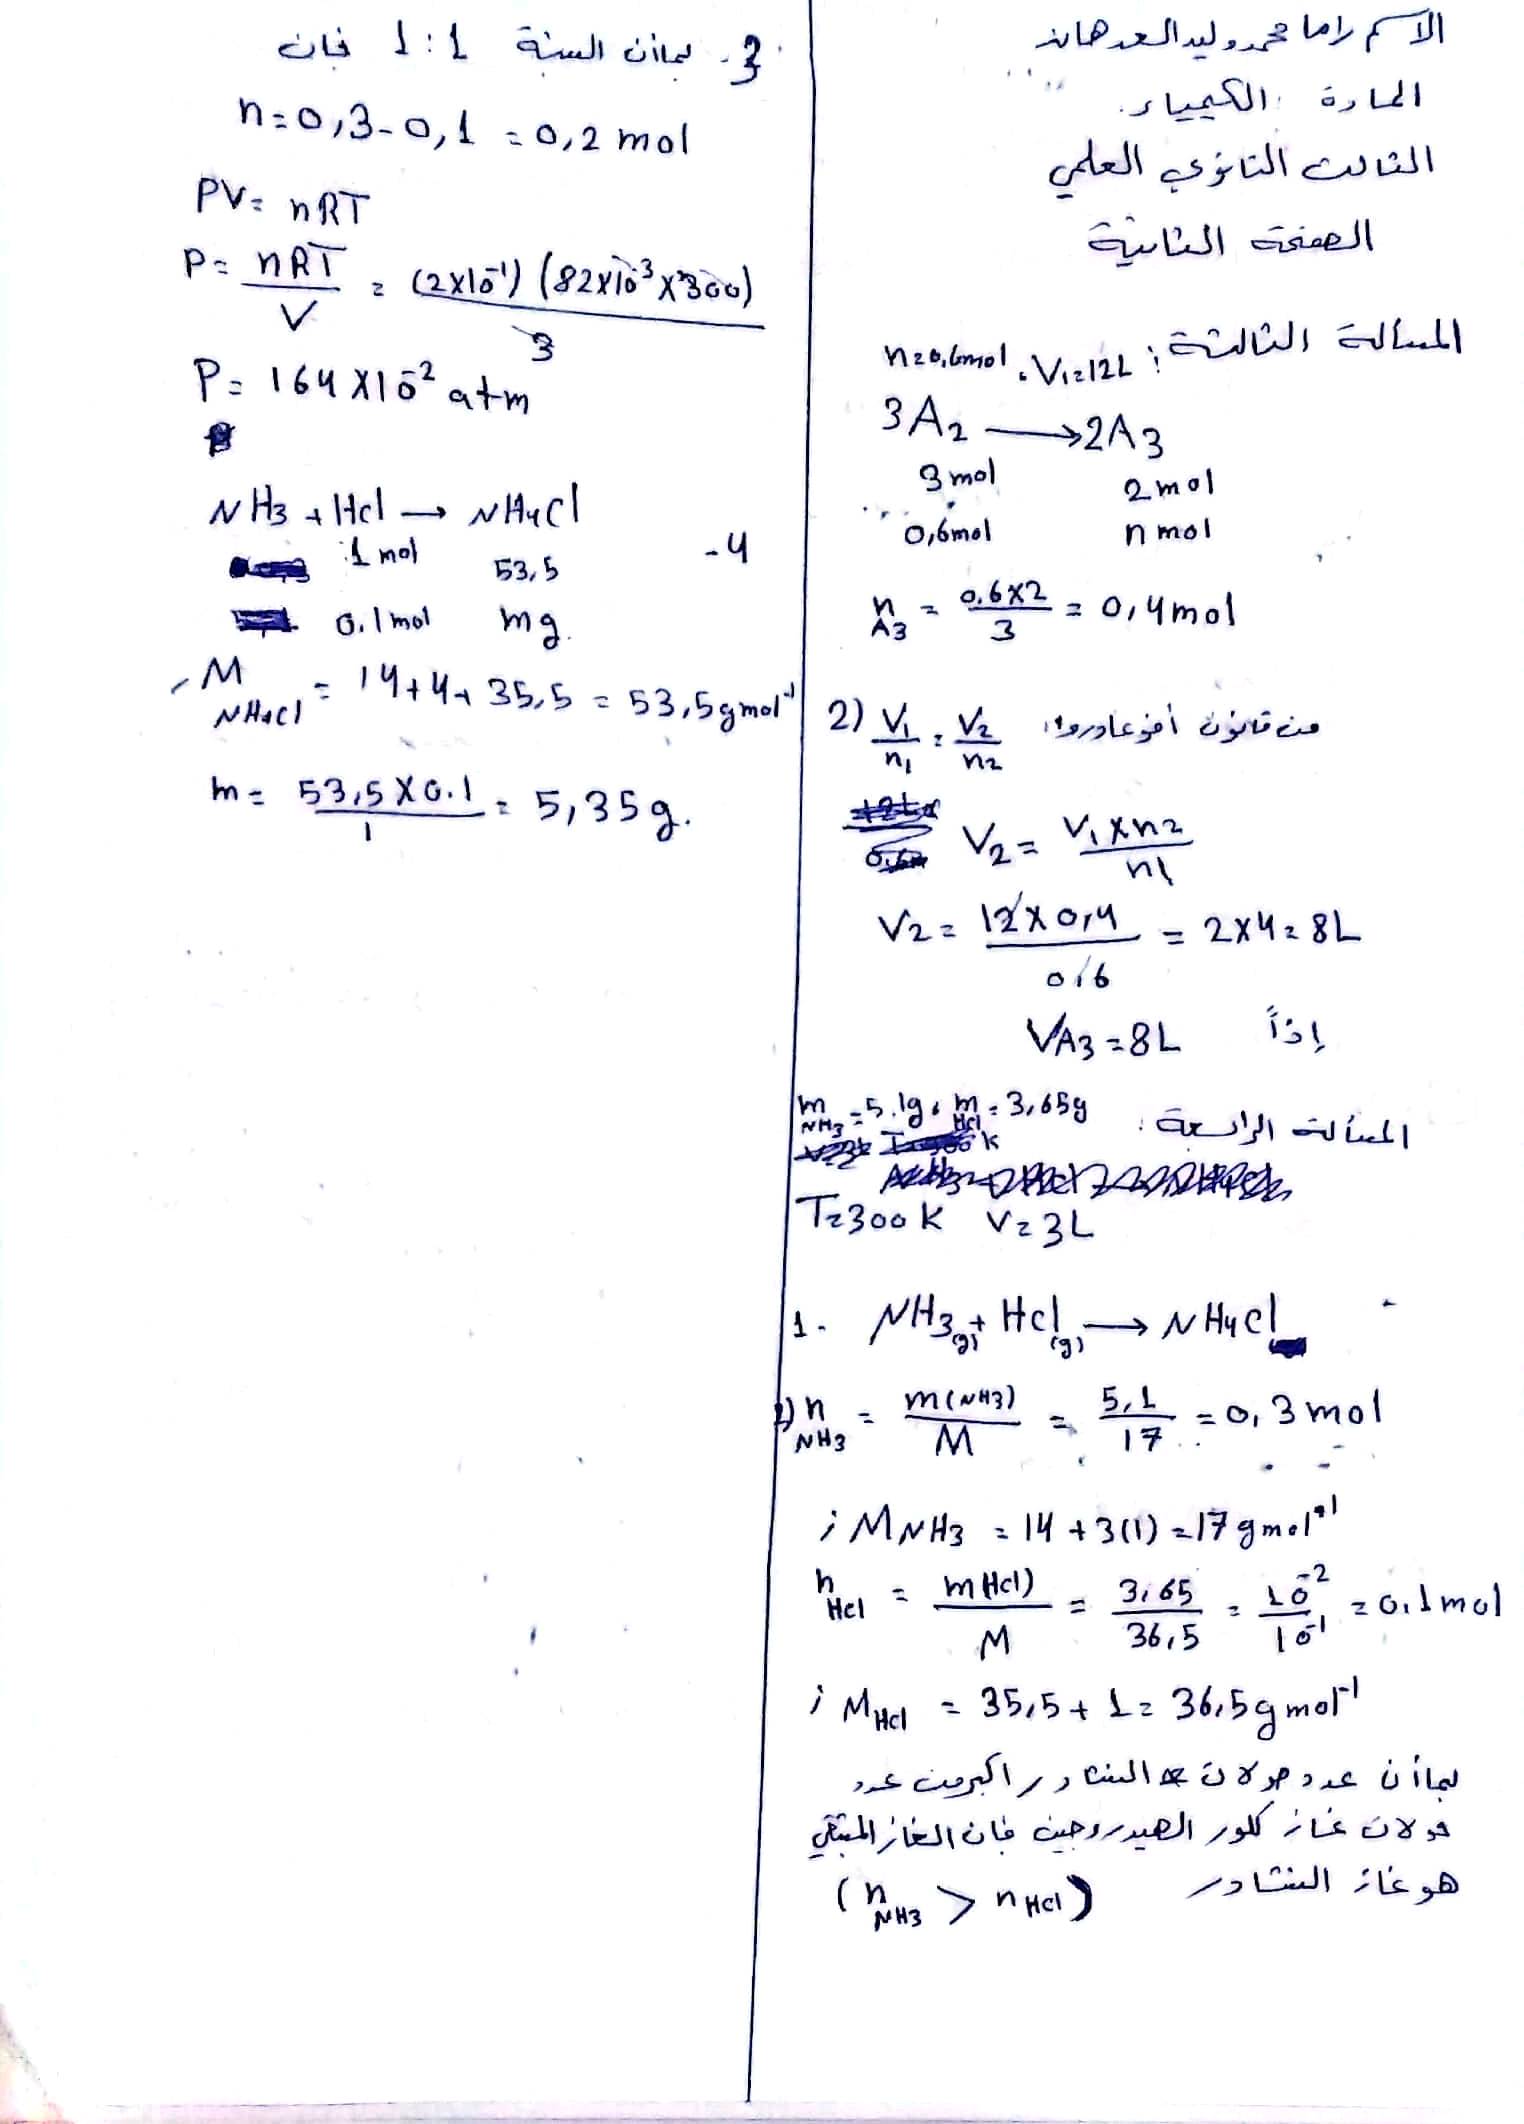 الاسم راما محمد وليد العدهان
المادة : الكيمياء.
الثالث الثانوي العلمي
الصفحة الثانية
المسألة الثالثة : V₁=12L ، n=0,6mol
3A₂ → 2A₃
3mol 2mol
0,6mol n mol
n A₃ = 0.6×2/3 = 0,4mol
2) V₁/n₁ = V₂/n₂ من قانون أفوغادرو:
V₂ = V₁×n₂/n1
V₂ = 12×0,4/0,6 = 2×4=8L
إذاً VA₃=8L
المسألة الرابعة : m NH₃=5.1g ، m HCl=3,65g
T=300k V=3L
1- NH₃(g) + Hcl(g) → NH₄Cl
2) n NH₃ = m(NH₃)/M = 5,1/17 = 0,3mol
; M NH₃ = 14+3(1)=17gmol⁻¹
n Hcl = m Hcl)/M = 3,65/36,5 = 10⁻²/10⁻¹ = 0.1mol
; M Hcl = 35,5+1= 36,5gmol⁻¹
بما أن عدد مولات النشادر اكبر من عدد
مولات غاز كلور الهيدروجين فان الغاز المتبقي
هو غاز النشادر (n NH₃ > n Hcl)
3- بمأن النسبة 1:1 فان
n=0,3-0,1 =0,2mol
PV=nRT
P= nRT/V = (2×10⁻¹)(82×10⁻³×300)/3
P= 164×10⁻² atm
4- NH₃ + Hcl → NH₄Cl
1mol 53,5
0.1mol mg.
M NH₄Cl = 14+4+35,5 = 53,5gmol⁻¹
m= 53,5×0.1/1 = 5,35g.